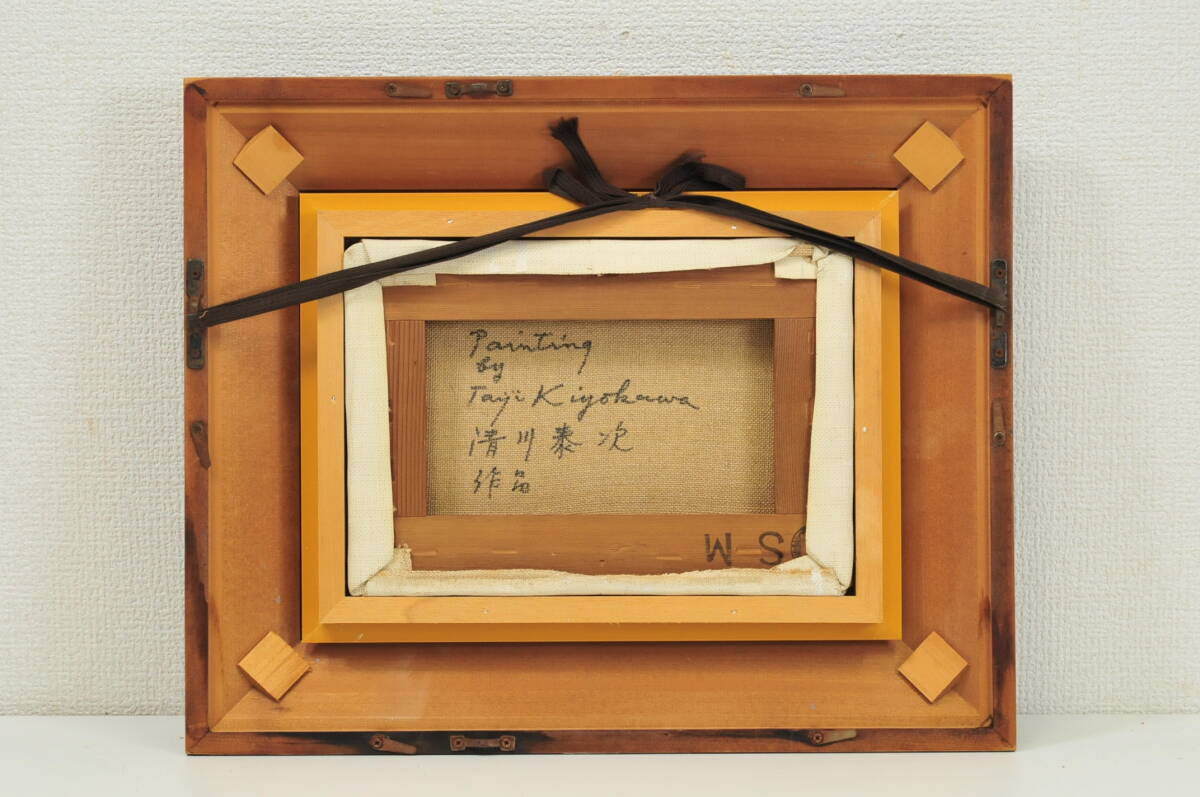 Painting
by
Taiji Kiyokawa
清川泰次
作品
SM